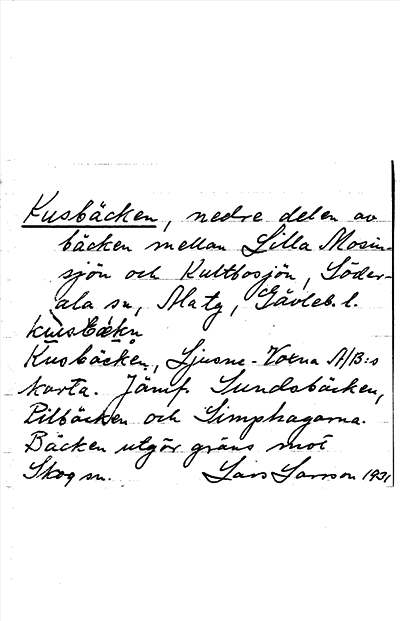 Kusbäcken, nedre delen av
bäcken mellan Lilla Mosin-
sjön och Kultbosjön, Söder-
ala sn, Ala tg, Gävleb. l.
kùsbækn
Kusbäcken, Ljusne-Voxna A/B:s
karta. Jämf. Sundsbäcken,
Pilbäcken och Simphagarna.
Bäcken utgör gräns mot
Skog sn. Lars Larsson 1931